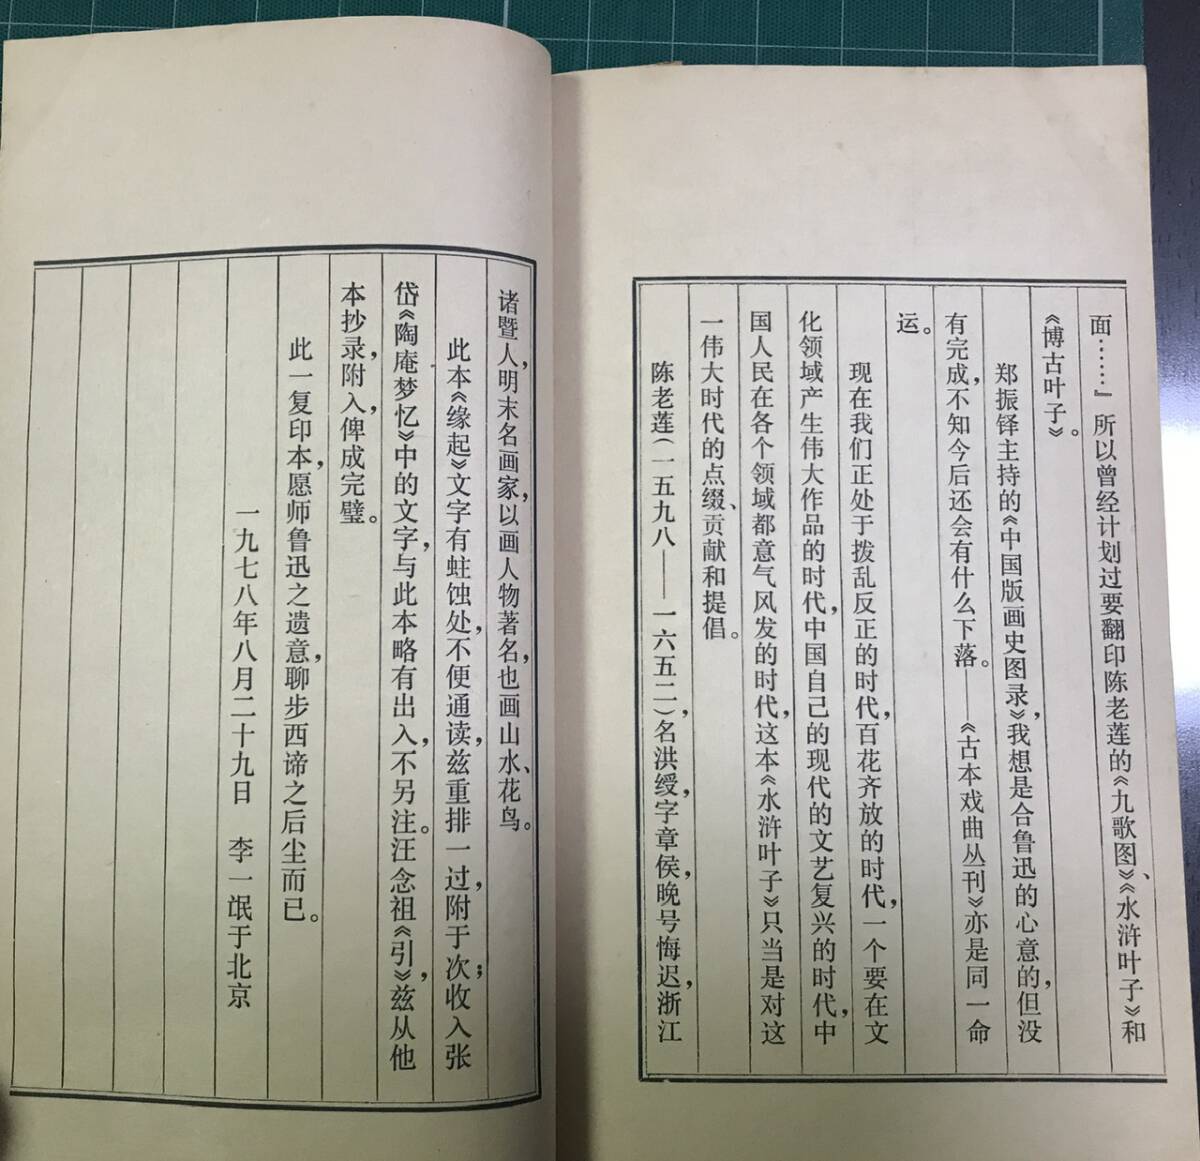 面……』所以曾经计划过要翻印陈老莲的《九歌图》、《水浒叶子》和
《博古叶子》。
郑振铎主持的《中国版画史图录》，我想是合鲁迅的心意的，但没
有完成，不知今后还会有什么下落。——《古本戏曲丛刊》亦是同一命
运。
现在我们正处于拨乱反正的时代，百花齐放的时代，一个要在文
化领域产生伟大作品的时代，中国自己的现代的文艺复兴的时代，中
国人民在各个领域都意气风发的时代，这本《水浒叶子》只当是对这
一伟大时代的点缀、贡献和提倡。
陈老莲（一五九八——一六五二），名洪绶，字章侯，晚号悔迟，浙江
诸暨人，明末名画家，以画人物著名，也画山水、花鸟。
此本《缘起》文字有蛀蚀处，不便通读，兹重排一过，附于次；收入张
岱《陶庵梦忆》中的文字，与此本略有出入，不另注。汪念祖《引》，兹从他
本抄录，附入，俾成完璧。
此一复印本，愿师鲁迅之遗意，聊步西谛之后尘而已。
一九七八年八月二十九日　李一氓于北京